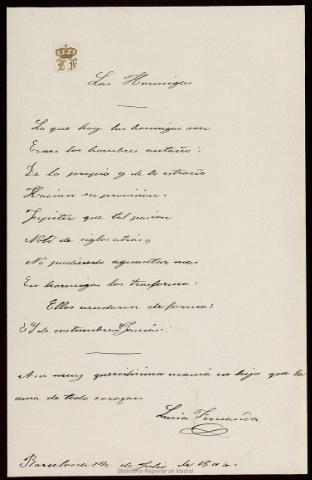 Las Hormigas
Lo que hoy las hormigas son
Eran los hombres antaño:
De lo propio y de lo estraño
Hacian su provision.
Jupiter que tal pasion
Notó de siglos atrás,
No pudiendo aguantar mas
En hormigas los trasforma:
Ellos mudaron de forma;
¿Y de costumbres? Jamás.
A su muy queridisima mamá su hija que la
ama de todo corazon
Luisa Fernanda
Barcelona de Julio de
Biblioteca Regional de Madrid